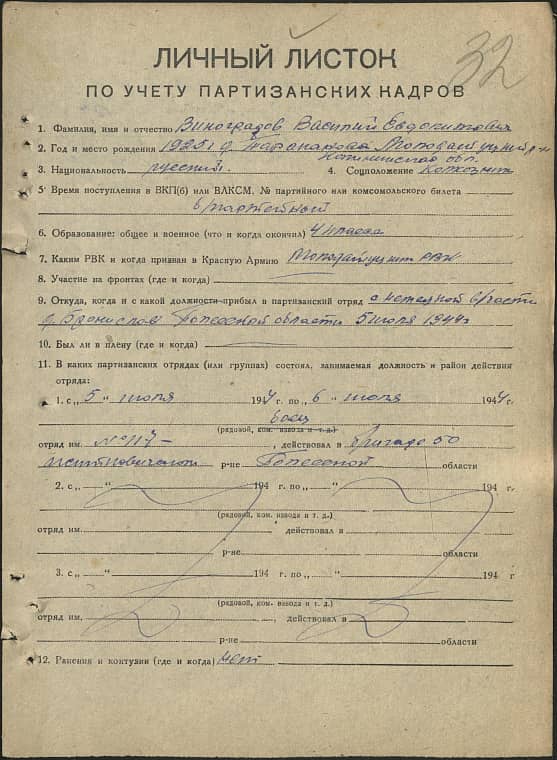 32
ЛИЧНЫЙ ЛИСТОК
ПО УЧЕТУ ПАРТИЗАНСКИХ КАДРОВ
1. Фамилия, имя и отчество Виноградов Василий Евдокимович
2. Год и место рождения 1925 г. д.
обл.
3. Национальность русский. 4. Соцположение Колхозник
5. Время поступления в ВКП(б) или ВЛКСМ, № партийного или комсомольского билета
б/партейный
6. Образование: общее и военное (что и когда окончил) 4 класса
7. Каким РВК и когда призван в Красную Армию РВК
8. Участие на фронтах (где и когда)
9. Откуда, когда и с какой должности прибыл в партизанский отряд с
д. Бронислав Полесской области 5 июля 1944 г
10. Был ли в плену (где и когда)
11. В каких партизанских отрядах (или группах) состоял, занимаемая должность и район действия
отряда:
1. с „5" июля 1944 г. по „6" июля 1944 г.
боец
(рядовой, ком. взвода и т. д.)
отряд им. № 117 – , действовал в бригаде 50
р-не Полесской области
2. с „ " 194 г. по „ " 194 г.
(рядовой, ком. взвода и т. д.)
отряд им. действовал в
р-не области
3. с „ " 194 г. по „ " 194 г
(рядовой, ком. взвода и т. д.)
отряд им. , действовал в
р-не области
12. Ранения и контузии (где и когда) нет